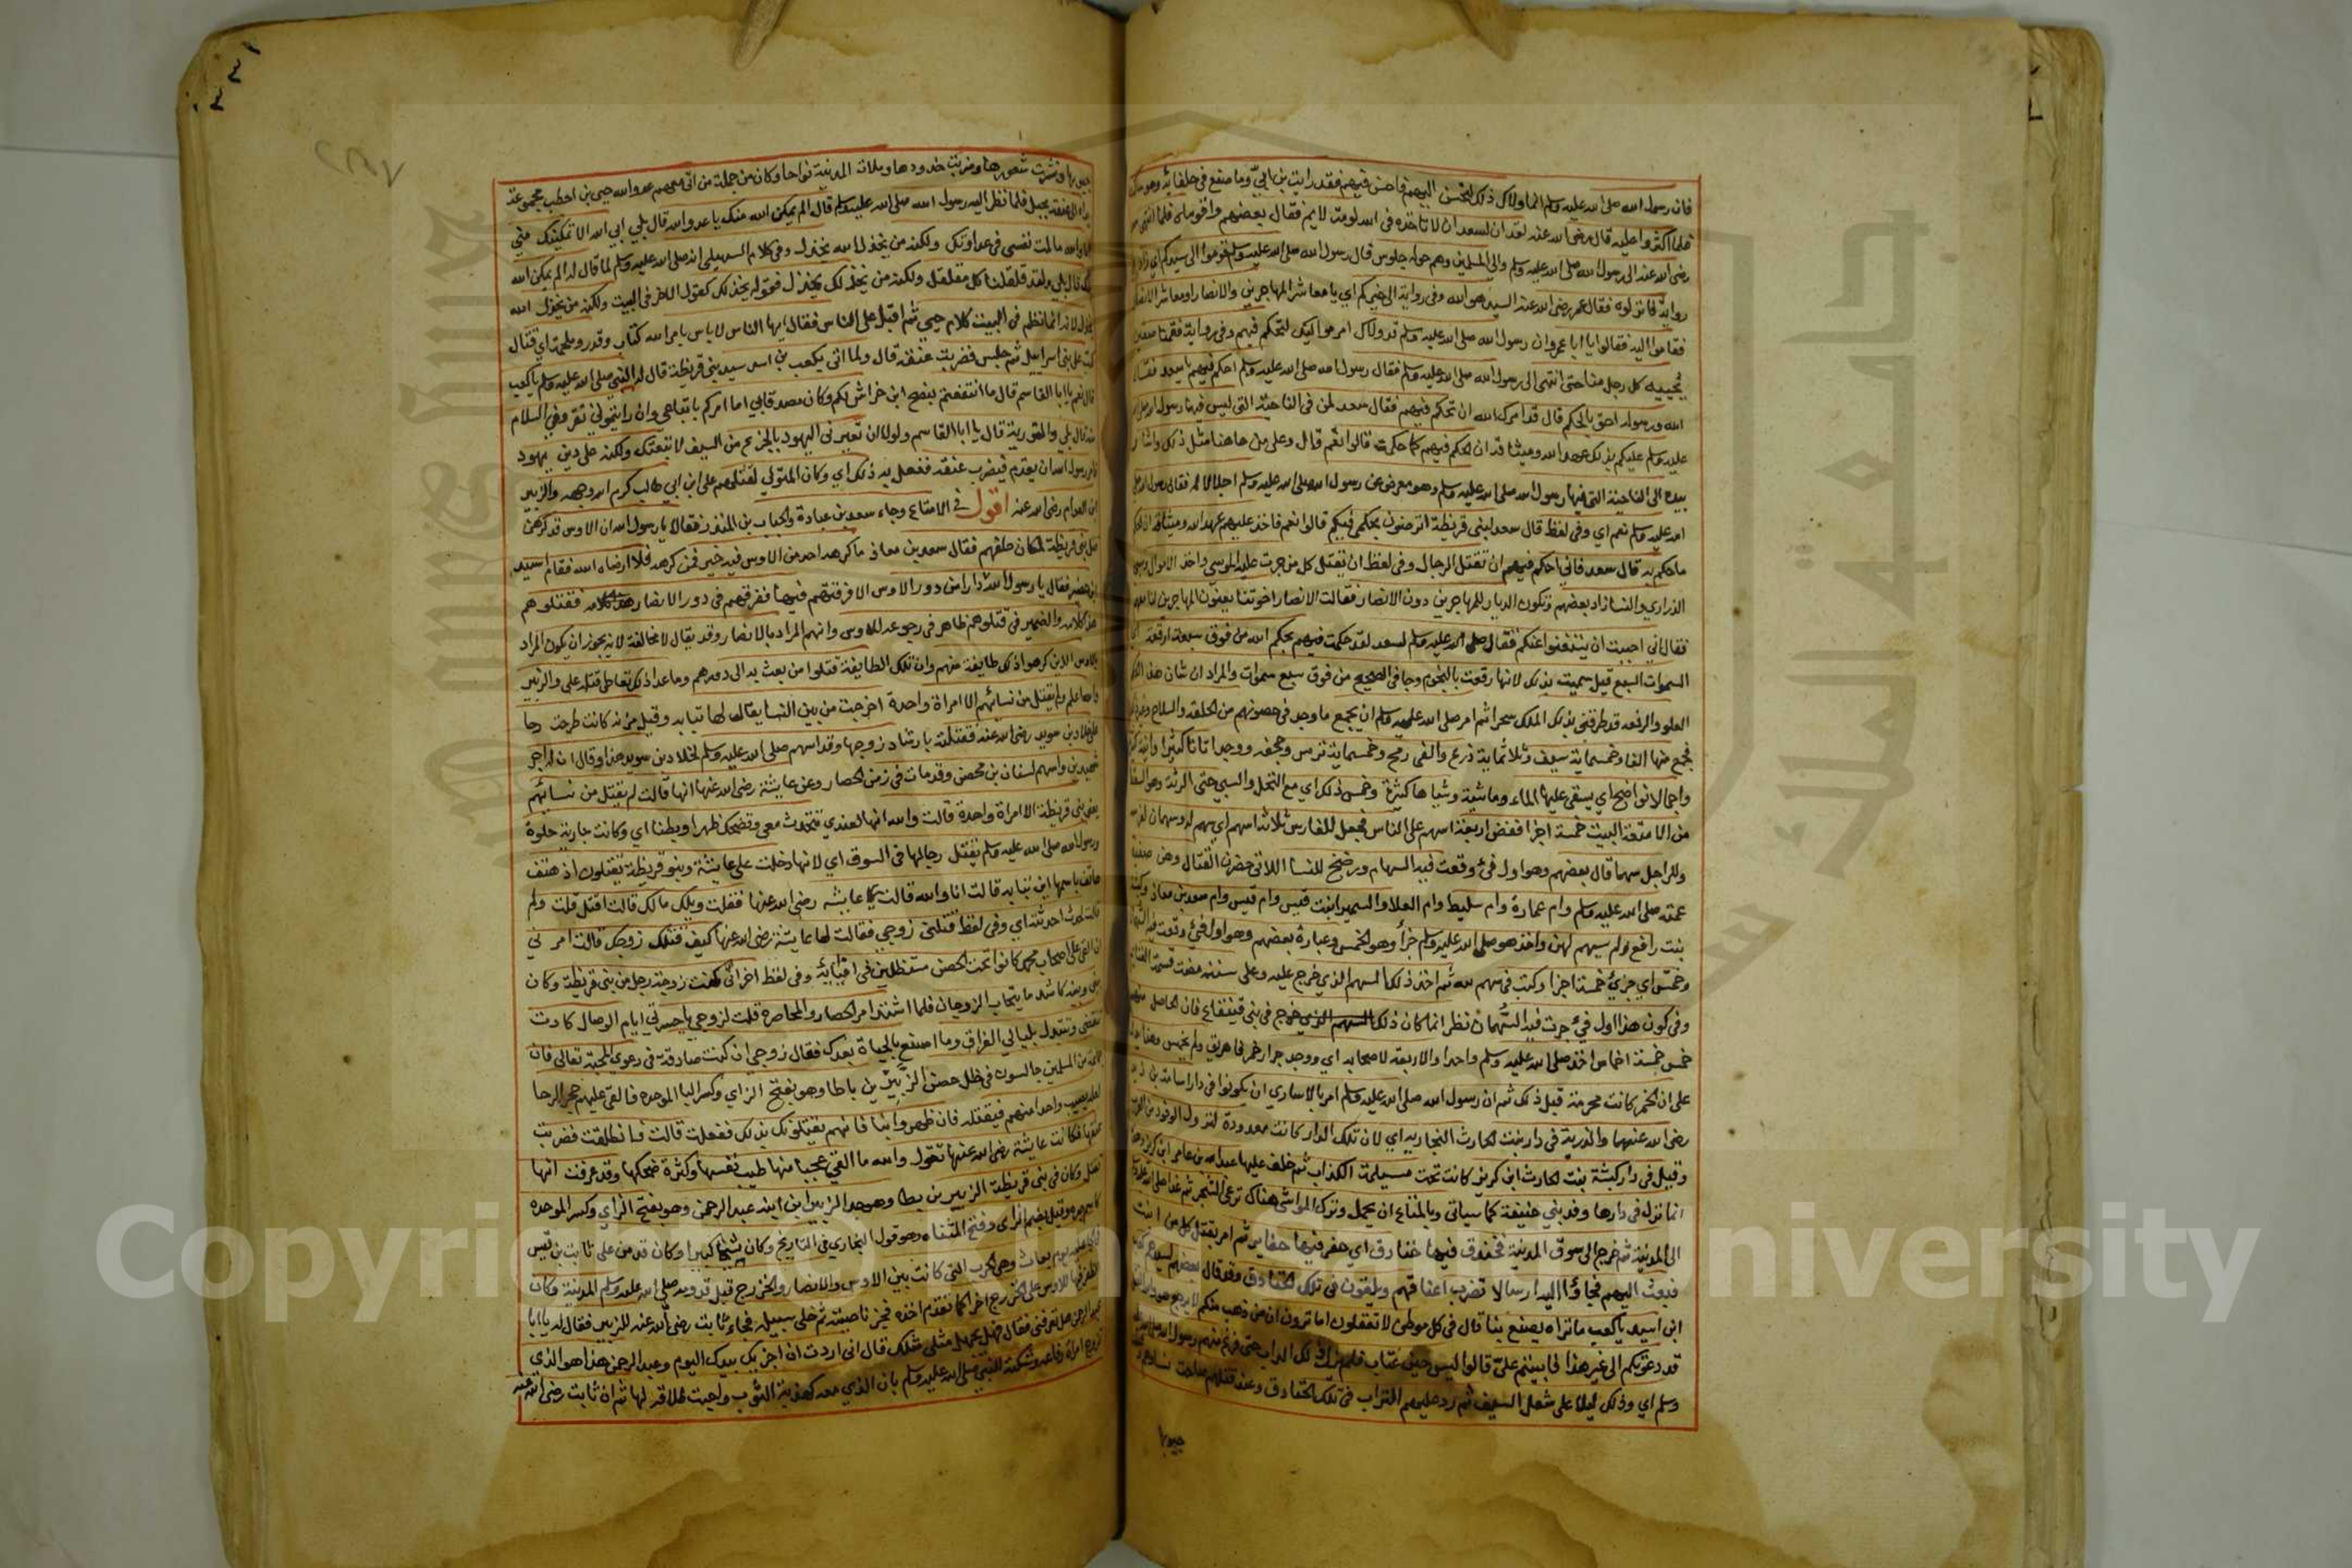 فان رسول الله صلى الله عليه وسلم انما ولاك ذلك لتحسن اليهم فاحسن فيهم فقد رايت بن ابي وما صنع في حلفائه وهو ساكت
فلما اكثروا عليه قال رضي الله عنه لقد ان لسعد ان لا تاخذه في الله لومة لايم فقال بعضهم واقوماه فلما انتهى سعد
رضي الله عنه الى رسول الله صلى الله عليه وسلم والى المسلمين وهم حوله جلوس قال رسول الله صلى الله عليه وسلم قوموا الى سيدكم اي زاد في
رواية فانزلوه فقال عمر رضي الله عنه السيد هو الله وفي رواية الى خيركم اي يا معاشر المهاجرين والانصار او معاشر الانصار
فقاموا اليه فقالوا يا ابا عمرو ان رسول الله صلى الله عليه وسلم قد ولاك امر مواليك لتحكم فيهم وفي رواية فقمنا صفين
يحييه كل رجل منا حتى انتهى الى رسول الله صلى الله عليه وسلم فقال رسول الله صلى الله عليه وسلم احكم فيهم يا سعد فقال
الله ورسوله احق بالحكم قال قد امرك الله ان تحكم فيهم فقال سعد لمن في الناحية التي ليس فيها رسول الله صلى الله
عليه وسلم عليكم بذلك عهد الله وميثاقه ان الحكم فيهم كما حكمت قالوا نعم قال وعلى من هاهنا مثل ذلك واشار
بيده الى الناحية التي فيها رسول الله صلى الله عليه وسلم وهو معرض عن رسول الله صلى الله عليه وسلم اجلالا له فقال رسول الله صلى
الله عليه وسلم نعم اي وفي لفظ قال سعد لبني قريظة اترضون بحكمي فيكم قالوا نعم فاخذ عليهم عهد الله وميثاقه ان الحكم
ما حكم به قال سعد فاني احكم فيهم ان تقتل الرجال وفي لفظ ان يقتل كل من جرت عليه الموسى واخذ الاموال وسبي
الذراري والنسا زاد بعضهم وتكون الديار للمهاجرين دون الانصار فقالت الانصار اخوتنا يعنون المهاجرين لنا معهم
فقال اني احببت ان يستغنوا عنكم فقال صلى الله عليه وسلم لسعد لقد حكمت فيهم بحكم الله من فوق سبعة ارقعة اي
السموات السبع قيل سميت بذلك لانها رقعت بالنجوم وجا في الصحيح من فوق سبع سموات والمراد ان شان هذا الحكم
العلو والرفعه قد طرقني بذلك الملك سحرا ثم امر صلى الله عليه وسلم ان يجمع ما وجد في حصونهم من الحلقه والسلاح وغير ذلك
فجمع منها الفا وخمسماية سيف وثلاثماية درع والفي رمح وخمسماية ترس وجحفه ووجد اثاثا كثيرا وانية كثيرة
واجمالا نواضح اي يسقي عليها الماء وماشية وشياها كثيرة وخمس ذلك اي مع النخل والسبي حتى الرثة وهو السقط
من الامتعة البيت خمسة اجزا ففض اربعة اسهم على الناس فجعل للفارس ثلاثة اسهم اي سهم له وسهمان لفرسه
وللراجل سهما قال بعضهم وهو اول فئ وقعت فيه السهام ورضخ للنسا اللاتي حضرن القتال وهن صفية
عمته صلى الله عليه وسلم وام عمارة وام سليط وام العلا والسميرا بنت قيس وام قيس وام سعد بن معاذ وكبشة
بنت رافع ولم يسهم لهن واخذ هو صلى الله عليه وسلم جزأ وهو الخمس وعبارة بعضهم وهو اول فئ وقعت فيه السهمان
وخمس اي جزئ خمسة اجزا وكتب في سهم لله ثم اخذ ذلك السهم الذي خرج عليه وعلى سننه مضت قسمة الغنائم
وفي كون هذا اول فئ جرت فيه السهمان نظر انما كان ذلك السهم الذي خرج في بني قينقاع فان الحاصل منهم
خمس خمسة اخماس اخذ صلى الله عليه وسلم واحدا والاربعة لاصحابه اي ووجد جرار خمر فاهريق ولم يخمس وهذا يدل
على ان الخمر كانت محرمة قبل ذلك ثم ان رسول الله صلى الله عليه وسلم امر بالاساري ان يكونوا في دار اسامة بن زيد
رضي الله عنهما والذرية في دار بنت الحارث النجاريه اي لان تلك الدار كانت معدودة لنزول الوفود من العرب
وقيل في دار كبشة بنت الحارث ابن كريز كانت تحت مسيلمة الكذاب ثم خلف عليها عبد الله بن عامر ابن كريز وهذا
انما نزل في دارها وفد بني حنيفة كما سياتي وبالمتاع ان يحمل وترك المواشي هناك ترعى الشجر ثم غدا صلى الله عليه وسلم
الى المدينة ثم خرج الى سوق المدينة فخندق فيها خنادق اي حفر فيها حفاير ثم امر بقتل كل من انبت
فبعث اليهم فجاؤا اليه ارسالا تضرب اعناقهم ويلقون في تلك الخنادق وقد قال بعضهم لسيدهم كعب
ابن اسيد يا كعب ما تراه يصنع بنا قال في كل موطن لا تعقلون اما ترون ان من ذهب منكم لا يرجع هو والله القتل
قد دعوتكم الى غير هذا فابيتم علي قالوا ليس حين عتاب فلم يزل ذلك الداب حتى فرغ منهم رسول الله صلى الله عليه
وسلم اي وذلك ليلا على شعل السعف ثم رد عليهم التراب في تلك الخنادق وعند قتلهم صاحت نساؤهم
جيوبها
جيوبها ونشرت شعورها وضربت خدودها وملات المدينة نواحا وكان من جملة من اتي معهم عدو الله حيي بن اخطب مجموعة
يداه الى عنقه بحبل فلما نظر اليه رسول الله صلى الله عليه وسلم قال الم يمكن الله منك يا عدو الله قال بلى ابى الله الا تمكينك مني
اما والله ما لمت نفسي في عداوتك ولكنه من يخذل الله يخذل وفي كلام السهيلي انه صلى الله عليه وسلم لما قال له الم يمكن الله
منك قال بلى ولقد قلقلنا كل مقلقل ولكنه من يخذلك يخذل فقوله يخذلك كقول الاخر في البيت ولكنه من يخذل الله
يخذل لانه انما نظم في البيت كلام حيي ثم اقبل على الناس فقال ايها الناس لا باس بامر الله كتاب وقدر وملحمة اي قتال
كتب على بني اسراييل ثم جلس فضربت عنقه قال ولما اتى بكعب بن اسد سيد بني قريظة قال له النبي صلى الله عليه وسلم يا كعب
قال نعم يا ابا القاسم قال ما انتفعتم بنصح ابن خراش لكم وكان مصدقا بي اما امركم باتباعي وان رايتموني تقروني السلام
منه قال بلى والتورية قال يا ابا القاسم ولولا ان تعيرني اليهود بالجزع من السيف لاتبعتك ولكنه على دين يهود
فامر رسول الله ان يقدم فيضرب عنقه ففعل به ذلك اي وكان المتولي لقتلهم علي ابن ابي طالب كرم الله وجهه والزبير
ابن العوام رضي الله عنه اقول في الامتاع وجاء سعد بن عبادة والحباب بن المنذر فقالا يا رسول الله ان الاوس قد كرهت
قتل بني قريظة لمكان حلفهم فقال سعد بن معاذ ما كرهه احد من الاوس فيه خير فمن كرهه فلا ارضاه الله فقام اسيد
ابن حضير فقال يا رسول الله دارا من دور الاوس الا فرقتهم فيها ففرقهم في دور الانصار فقتلوهم
هذا كلامه والضمير في قتلوهم ظاهر في رجوعه للاوس وانهم المراد بالانصار وقد يقال لا مخالفة لانه يجوز ان يكون المراد
بالاوس الذين كرهوا ذلك طايفة منهم وان تلك الطايفة قتلوا من بعث به الى دورهم وما عدا ذلك تعاطى قتله علي والزبير
والله اعلم ولم يقتل من نسائهم الا امراة واحدة اخرجت من بين النسا يقال لها نباته وقيل مزنه كانت طرحت رحا
على خلاد بن سويد رضي الله عنه فقتلته بارشاد زوجها وقد اسهم صلى الله عليه وسلم لخلاد بن سويد هذا وقال ان له اجر
شهيدين واسهم لسنان بن محصن وقد مات في زمن الحصار وعن عايشة رضي الله عنها انها قالت لم يقتل من نسائهم
يعني بني قريظة الا امراة واحدة قالت والله انها لعندي تتحدث معي وتضحك ظهرا وبطنا اي وكانت جارية حلوة
رسول الله صلى الله عليه وسلم يقتل رجالها في السوق اي لانها دخلت على عايشة وبنو قريظة يقتلون اذ هتف
هاتف باسمها اين نباته قالت انا والله قالت عايشه رضي الله عنها فقلت ويلك ما لك قالت اقتل قلت ولم
قالت لحدث احدثته اي وفي لفظ قتلني زوجي فقالت لها عايشة رضي الله عنها كيف قتلك زوجك قالت امرني
ان القي على اصحاب محمد كانوا تحت الحصن مستظلين في افيائه وفي لفظ اخر اني كنت زوجة رجل من بني قريظة وكان
بيني وبينه كاشد ما يتحاب الزوجان فلما اشتد امر الحصار والمحاصرة قلت لزوجي يا حسرتي ايام الوصال كادت
تنقضي وتتبدل بليالي الفراق وما اصنع بالحياة بعدك فقال زوجي ان كنت صادقة في دعوى المحبة تعالي فان
جماعة من المسلمين جالسون في ظل حصن الزبير بن باطا وهو بفتح الزاي وكسر البا الموحدة فالقي عليهم حجر الرحا
لعله يصيب واحدا منهم فيقتله فان ظهروا بنا فانهم يقتلونك بذلك ففعلت قالت فانطلقت فضربت
عنقها فكانت عايشة رضي الله عنها تقول والله ما القي عجبا منها طيب نفسها وكثرة ضحكها وقد عرفت انها
تقتل وكان في بني قريظة الزبير بن بطا وهو جد الزبير ابن ابنه عبد الرحمن وهو بفتح الزاي وكسر الموحده
كاسم جده وقيل بضم الزاي وفتح المثناه وهو قول البخاري في التاريخ وكان شيخا كبيرا وكان قد من على ثابت بن قيس
يوم بعاث وهي الحرب التي كانت بين الاوس والانصار والخزرج قبل قدومه صلى الله عليه وسلم المدينة وكان
الظفر فيها للاوس على الخزرج اخرا كما تقدم اخذه فجز ناصيته ثم خلى سبيله فجاء ثابت رضي الله عنه للزبير فقال له يا ابا
عبد الرحمن هل تعرفني فقال هل يجهل مثلي مثلك قال اني اردت ان اجزيك بيدك اليوم وعبد الرحمن هذا هو الذي
تزوج امراة رفاعه وشكته للنبي صلى الله عليه وسلم بان الذي معه كهدبة الثوب واحبت طلاقه لها ثم ان ثابت رضي الله عنه
Copyright © King Saud University
جامعة الملك سعود